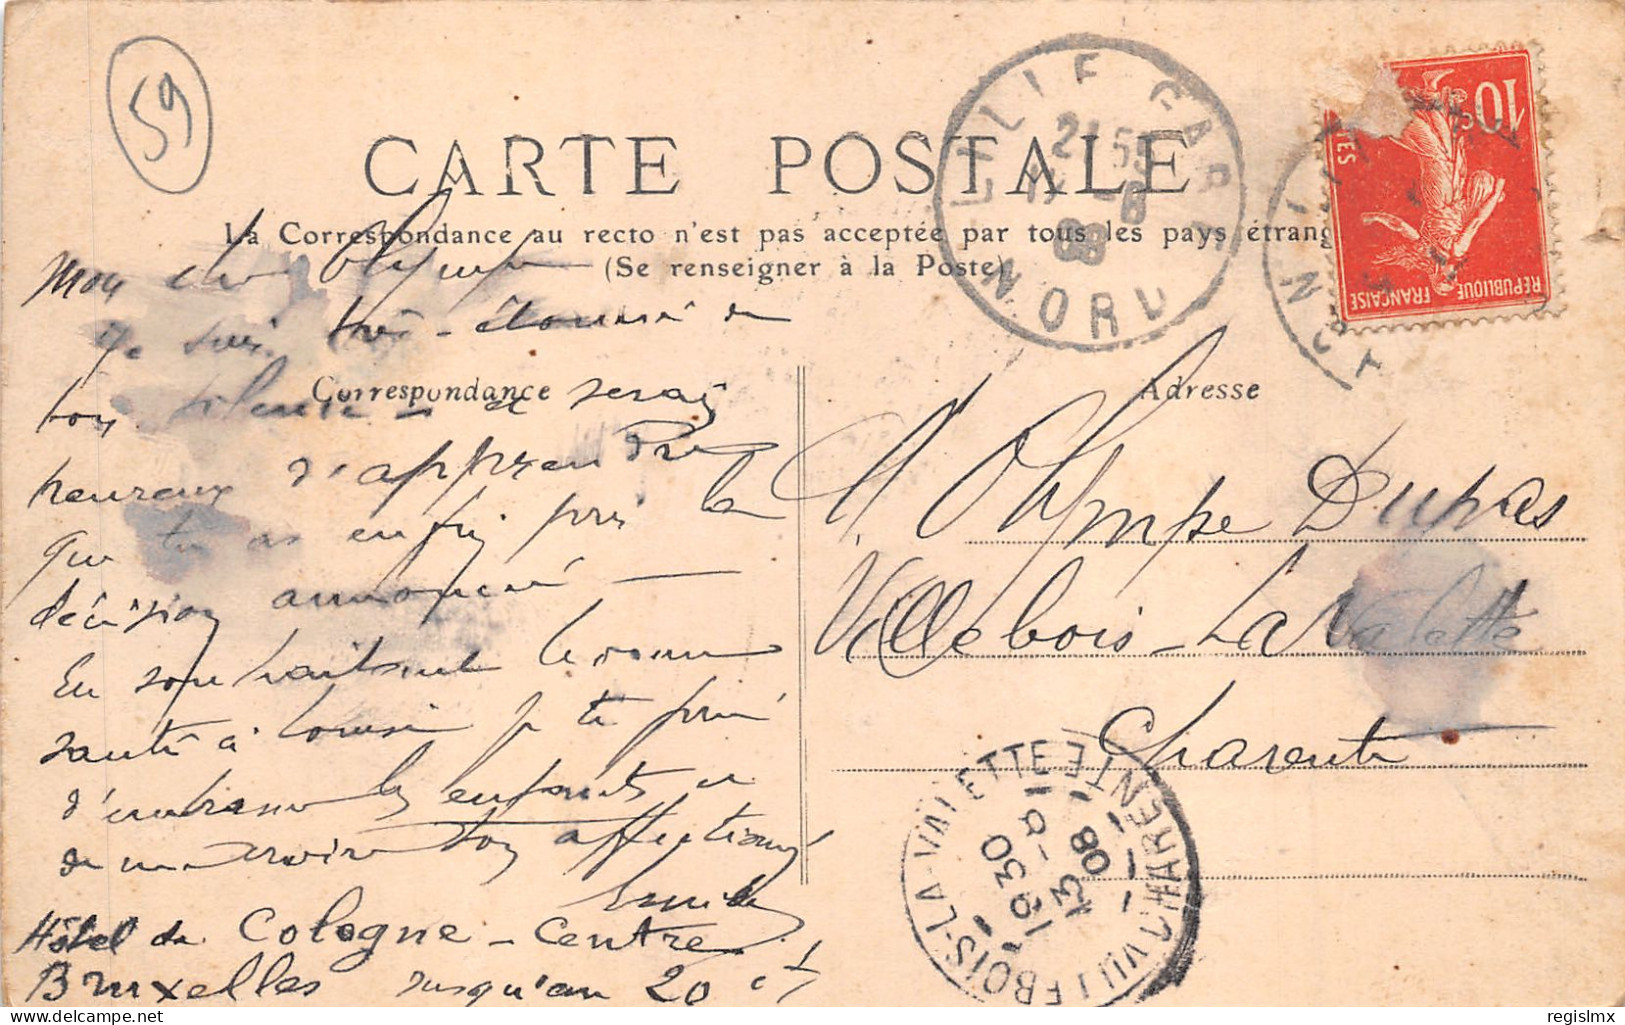 59
CARTE POSTALE
La Correspondance au recto n'est pas acceptée par tous les pays étrang
(Se renseigner à la Poste)
Correspondance
Adresse
Mon cher Olympe
je suis très-étonné de
ton silence - et serais
heureux d'apprendre
que tu as enfin pris la
décision annoncée
En souhaitant bonne
santé à Louise je te prie
d'embrasser les enfants et
de me croire ton affectionné
Emile
Hôtel de Cologne - Centre
Bruxelles jusqu'au 20 ct
M. Olympe Dupras
Villebois-Lavalette
Charente
LILLE GARE
21 55
-6
08
NORD
10
POSTES
REPUBLIQUE
FRANCAISE
VILLEBOIS-LA-VALETTE
CHARENTE
19 30
13 -6
08
delcampe.net
regislmx